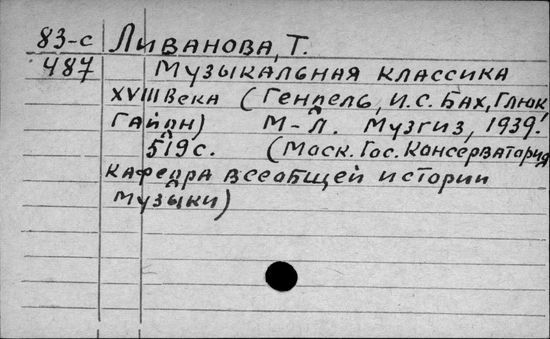 83-с Ливанова, Т.
487 Музыкальная классика
XVIII века (Гендель, И.С. Бах, Глюк,
Гайдн) М-Л. Музгиз, 1939.
519 с. (Моск. Гос. Консерватория
кафедра всеобщей истории
музыки)